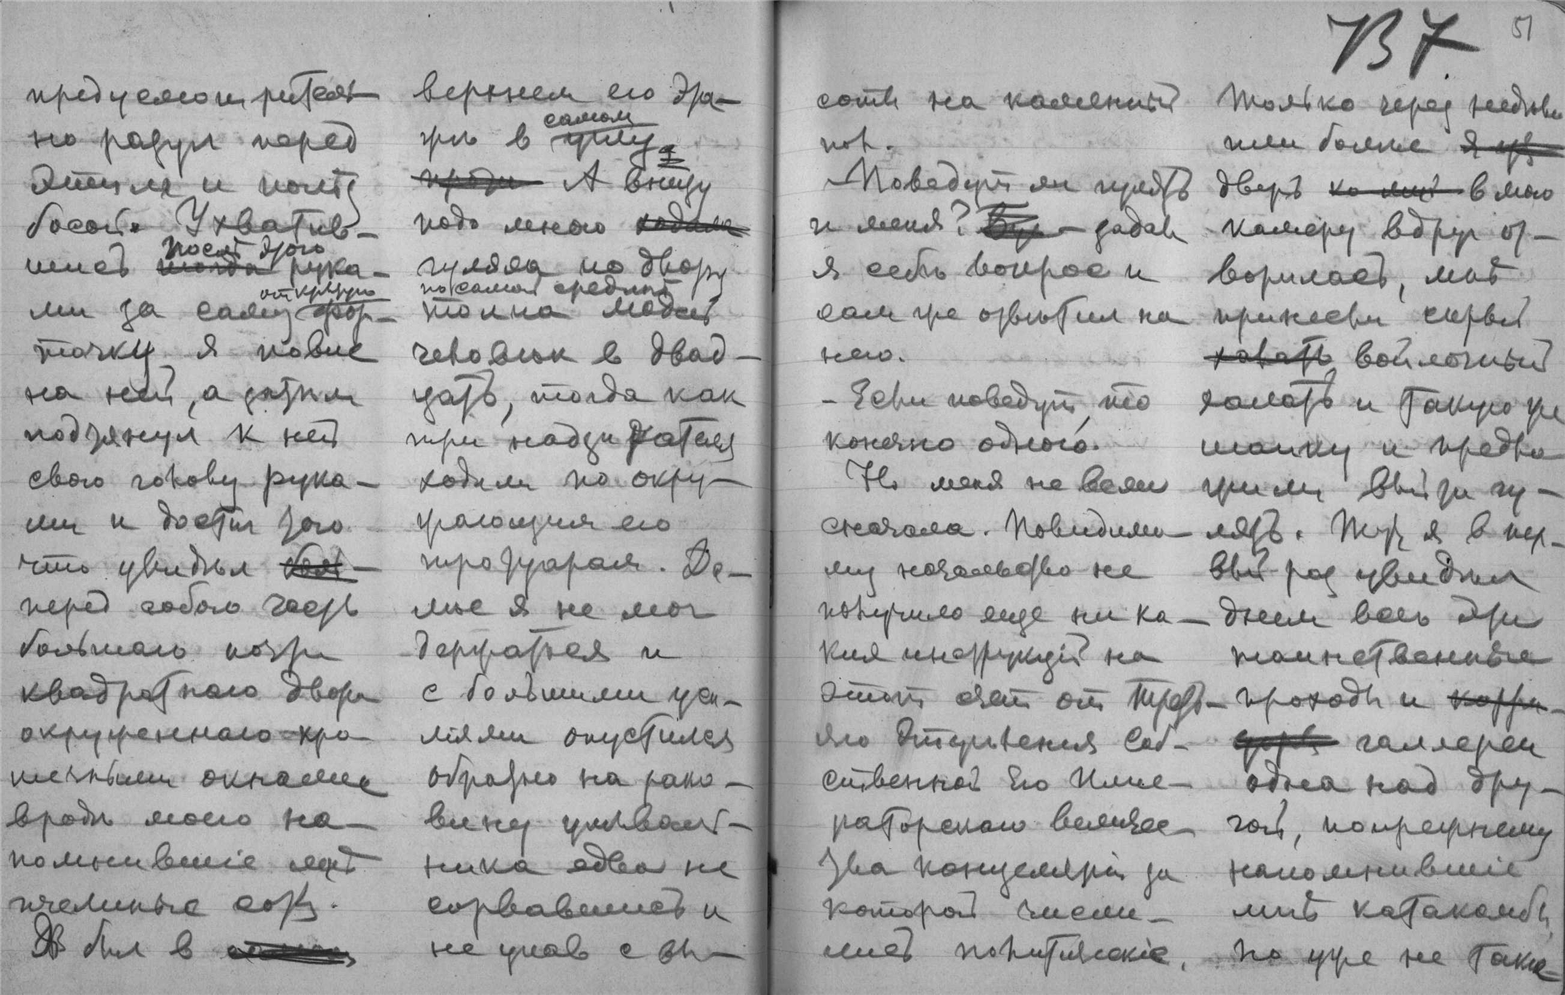 В 7
51
предусмотритель-
но разул перед
этим и полез
босой. Ухватив-
шись после этого рука-
ми за самую открытую фор-
точку я повис
на ней, а затем
подтянул к ней
свою голову рука-
ми и достиг того
что увидѣл
перед собою часть
большаго почти
квадратнаго двора
окруженнаго кро-
шечными окнами
вродѣ моего на-
помнившие мнѣ
пчелиные соты.
Я был в
верхнем его эта-
жѣ в самом углу.
А внизу
подо мною
гуляла по двору
по самой срединѣ
толпа людей
человѣк в двад-
цать, тогда как
при надзирателя
ходили по окру-
жающим его
тротуарам. Да-
лѣе я не мог
держаться и
с большими уси-
лиями опустился
обратно на рако-
вину умываль-
ника едва не
сорвавшись и
не упав с вы-
соты на каменный
пол.
Поведут ли гулять
и меня? – задал
я себѣ вопрос и
сам же отвѣтил на
него.
– Если поведут, то
конечно одного.
Но меня не вели
сначала. Повидимо-
му начальство не
получило еще ника-
ких инструкций на
этот счет от Треть-
яго Отдѣления Соб-
ственной Его Импе-
раторскаго Величес-
тва Канцелярии за
которой числи-
лись политические.
Только через недѣлю
или болѣе
дверь в мою
камеру вдруг от-
ворилась, мнѣ
принесли сѣрый
войлочный
халат и такую же
шапку и предло-
жили выйти гу-
лять. Тут я в пер-
вый раз увидѣл
днем всѣ эти
таинственные
проходы и
галлереи
одна над дру-
гой, попрежнему
напомнившие
мнѣ катакомбы,
но уже не такие